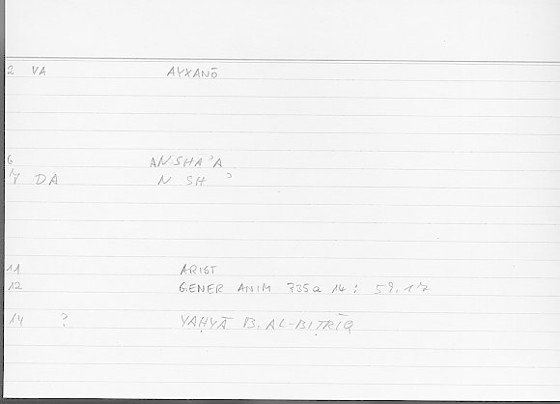 2 VA AYXANŌ
6 ANSHA'A
7 DA N SH '
11 ARIST
12 GENER ANIM 735a 14 : 59.17
14 ? YAḤYĀ B. AL-BIṬRĪQ